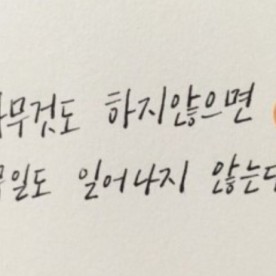 아무것도 하지않으면
무일도 일어나지 않는다